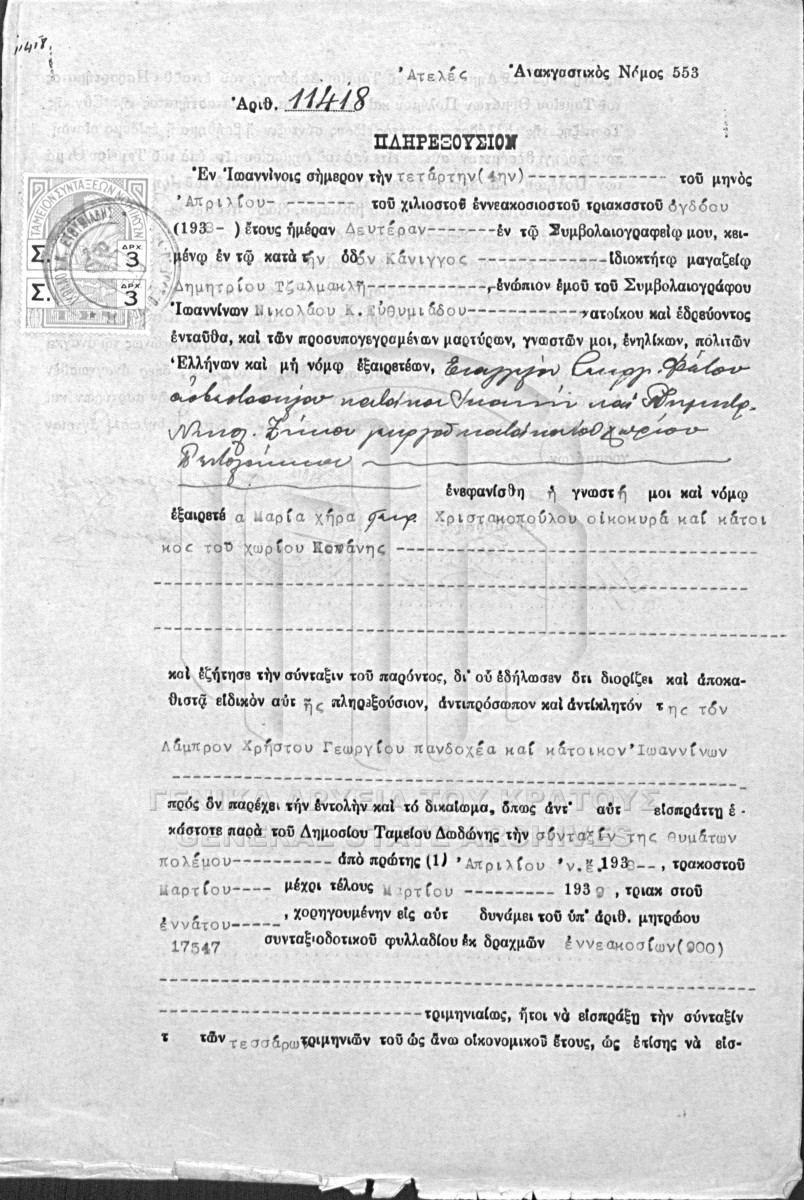 11418
Ἀτελές Ἀναγκαστικὸς Νόμος 553
Ἀριθ. 11418
ΠΛΗΡΕΞΟΥΣΙΟΝ
Ἐν Ἰωαννίνοις σήμερον τὴν τετάρτην(4ην)---------- τοῦ μηνὸς
Ἀπριλίου---------- τοῦ χιλιοστοῦ ἐννεακοσιοστοῦ τριακοστοῦ ὀγδόου
(1938-) ἔτους ἡμέραν Δευτέραν--------ἐν τῷ Συμβολαιογραφείῳ μου, κει-
μένῳ ἐν τῷ κατὰ τὴν ὁδὸν Κάνιγγος -------------ἰδιοκτήτῳ μαγαζείῳ
Δημητρίου Τζαλμακλῆ-------------,ἐνώπιον ἐμοῦ τοῦ Συμβολαιογράφου
Ἰωαννίνων Νικολάου Κ.Εὐθυμιάδου-----------κατοίκου καὶ ἑδρεύοντος
ἐνταῦθα, καὶ τῶν προσυπογεγραμένων μαρτύρων, γνωστῶν μοι, ἐνηλίκων, πολιτῶν
Ἑλλήνων καὶ μὴ νόμῳ ἐξαιρετέων,
Νικολ. Ζήκου χωρίου
ἐνεφανίσθη ἡ γνωστή μοι καὶ νόμῳ
ἐξαιρετέ α Μαρία χήρα Γεωρ. Χριστακοπούλου οἰκοκυρά καί κάτοι
κος τοῦ χωρίου Κοπάνης -----------------------------------
καὶ ἐζήτησε τὴν σύνταξιν τοῦ παρόντος, δι' οὗ ἐδήλωσεν ὅτι διορίζει καὶ ἀποκα-
θιστᾷ εἰδικὸν αὐτ ῆς πληρεξούσιον, ἀντιπρόσωπον καὶ ἀντίκλητόν της τόν
Λάμπρον Χρήστου Γεωργίου πανδοχέα καί κάτοικον Ἰωαννίνων
ΓΕΝΙΚΑ ΑΡΧΕΙΑ ΤΟΥ ΚΡΑΤΟΥΣ
πρὸς ὃν παρέχει τὴν ἐντολὴν καὶ τὸ δικαίωμα, ὅπως ἀντ' αὐτ εἰσπράττῃ ἑ-
κάστοτε παρὰ τοῦ Δημοσίου Ταμείου Δωδώνης τὴν σύνταξίν της θυμάτων
GENERAL STATE ARCHIVES
πολέμου---------- ἀπὸ πρώτης (1) Ἀπριλίου ἐ.ἔ.1938--, τρακοστοῦ
Μαρτίου---- μέχρι τέλους Μαρτίου --------- 1939, τριακ στοῦ
ἐννάτου-----, χορηγουμένην εἰς αὐτ δυνάμει τοῦ ὑπ' ἀριθ. μητρώου
17547 συνταξιοδοτικοῦ φυλλαδίου ἐκ δραχμῶν ἐννεακοσίων(900)
---------------------------τριμηνιαίως, ἤτοι νὰ εἰσπράξῃ τὴν σύνταξίν
τ τῶν τεσσάρων τριμηνιῶν τοῦ ὡς ἄνω οἰκονομικοῦ ἔτους, ὡς ἐπίσης νὰ εἰσ-
ΤΑΜΕΙΟΝ ΣΥΝΤΑΞΕΩΝ ΝΟΜΙΚΩΝ
Σ. ΔΡΧ. 3
Σ. ΔΡΧ. 3